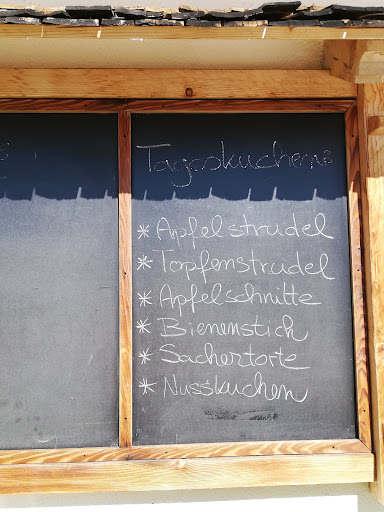 Tageskuchen:
* Apfelstrudel
* Topfenstrudel
* Apfelschnitte
* Bienenstich
* Sachertorte
* Nusskuchen